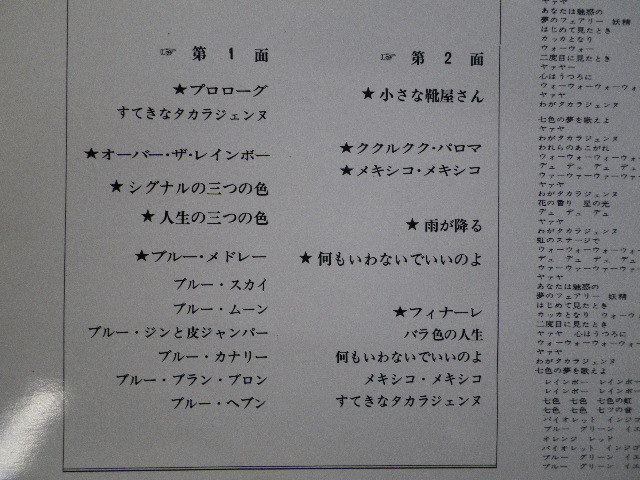 ☞ 第1面
★プロローグ
すてきなタカラジェンヌ
★オーバー・ザ・レインボー
★シグナルの三つの色
★人生の三つの色
★ブルー・メドレー
ブルー・スカイ
ブルー・ムーン
ブルー・ジンと皮ジャンパー
ブルー・カナリー
ブルー・ブラン・ブロン
ブルー・ヘブン
☞ 第2面
★小さな靴屋さん
★ククルクク・パロマ
★メキシコ・メキシコ
★雨が降る
★何もいわないでいいのよ
★フィナーレ
バラ色の人生
何もいわないでいいのよ
メキシコ・メキシコ
すてきなタカラジェンヌ
ヤァヤ
あなたは魅惑の
夢のフェアリー 妖精
はじめて見たとき
カッカとなり
ウォーウォー
二度目に見たとき
ヤァヤー
心はうつろに
ウォーウォーウォーウォ
ヤァヤ
わがタカラジェンヌ
七色の夢を歌えよ
ヤァヤ
わがタカラジェンヌ
われらのあこがれ
ウォーウォーウォーウォ
デュ デュ デュ デュ
ウァーウァーウァーウァ
ヤァヤ
わがタカラジェンヌ
花の香り 星の光
デュ デュ デュ
ヤァヤ
わがタカラジェンヌ
虹のステージで
ウォーウォーウォーウォ
デュ デュ デュ デュ
ウァーウァーウァーウァ
ヤァヤ
あなたは魅惑の
夢のフェアリー 妖精
はじめて見たとき
カッカとなり ウォーウォ
二度目に見たとき
ヤァヤ 心はうつろに
ウォーウォーウォーウォ
ヤァヤ
わがタカラジェンヌ
七色の夢を歌えよ
レインボー レインボー
レインボー レインボー
七色 七色 七色の虹
七色 七色 七つの音
バイオレット インジゴ
ブルー グリーン イエ
オレンジ レッド
バイオレット インジゴ
ブルー グリーン イエ
ブルー グリーン イエ